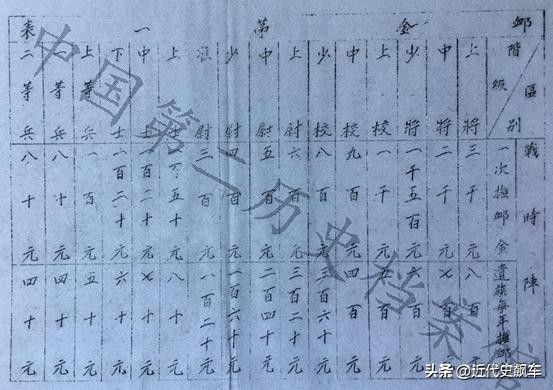 卹金第一表
階級 區別 戰時陣
一次撫卹金 遺族每年撫卹
上將 三千元 八百元
中將 二千元 七百元
少將 一千五百元 六百元
上校 一千元 五百元
中校 九百元 四百元
少校 八百元 三百六十元
上尉 六百元 三百二十元
中尉 五百元 二百四十元
少尉 四百元 一百六十元
准尉 三百元 一百二十元
上士 百五十元 八十元
中士 百二十元 七十元
下士 百二十元 六十元
上等兵 一百元 五十元
一等兵 八十元 四十元
二等兵 八十元 四十元
中国第二历史档案馆
头条 @近代史飙车